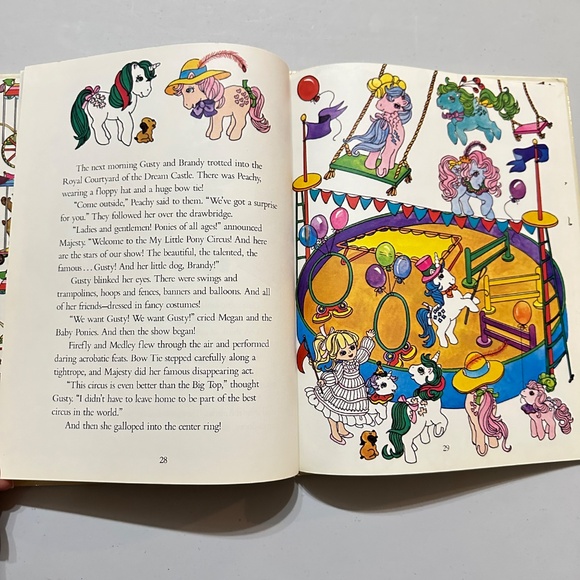 The next morning Gusty and Brandy trotted into the
Royal Courtyard of the Dream Castle. There was Peachy,
wearing a floppy hat and a huge bow tie!
"Come outside," Peachy said to them. "We've got a surprise
for you." They followed her over the drawbridge.
"Ladies and gentlemen! Ponies of all ages!" announced
Majesty. "Welcome to the My Little Pony Circus! And here
are the stars of our show! The beautiful, the talented, the
famous . . . Gusty! And her little dog, Brandy!"
Gusty blinked her eyes. There were swings and
trampolines, hoops and fences, banners and balloons. And all
of her friends—dressed in fancy costumes!
"We want Gusty! We want Gusty!" cried Megan and the
Baby Ponies. And then the show began!
Firefly and Medley flew through the air and performed
daring acrobatic feats. Bow Tie stepped carefully along a
tightrope, and Majesty did her famous disappearing act.
"This circus is even better than the Big Top," thought
Gusty. "I didn't have to leave home to be part of the best
circus in the world."
And then she galloped into the center ring!
28
29